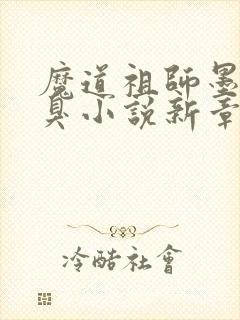 魔道祖師墨
臭小說新章
冷酷社會